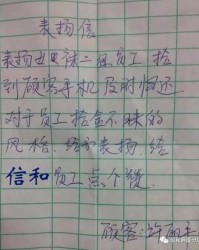 表扬信
表扬出口袜二组员工 捡
到顾客手机及时归还
对于员工拾金不昧的
风格 给予表扬 给
信和员工点个赞
顾客:许丽